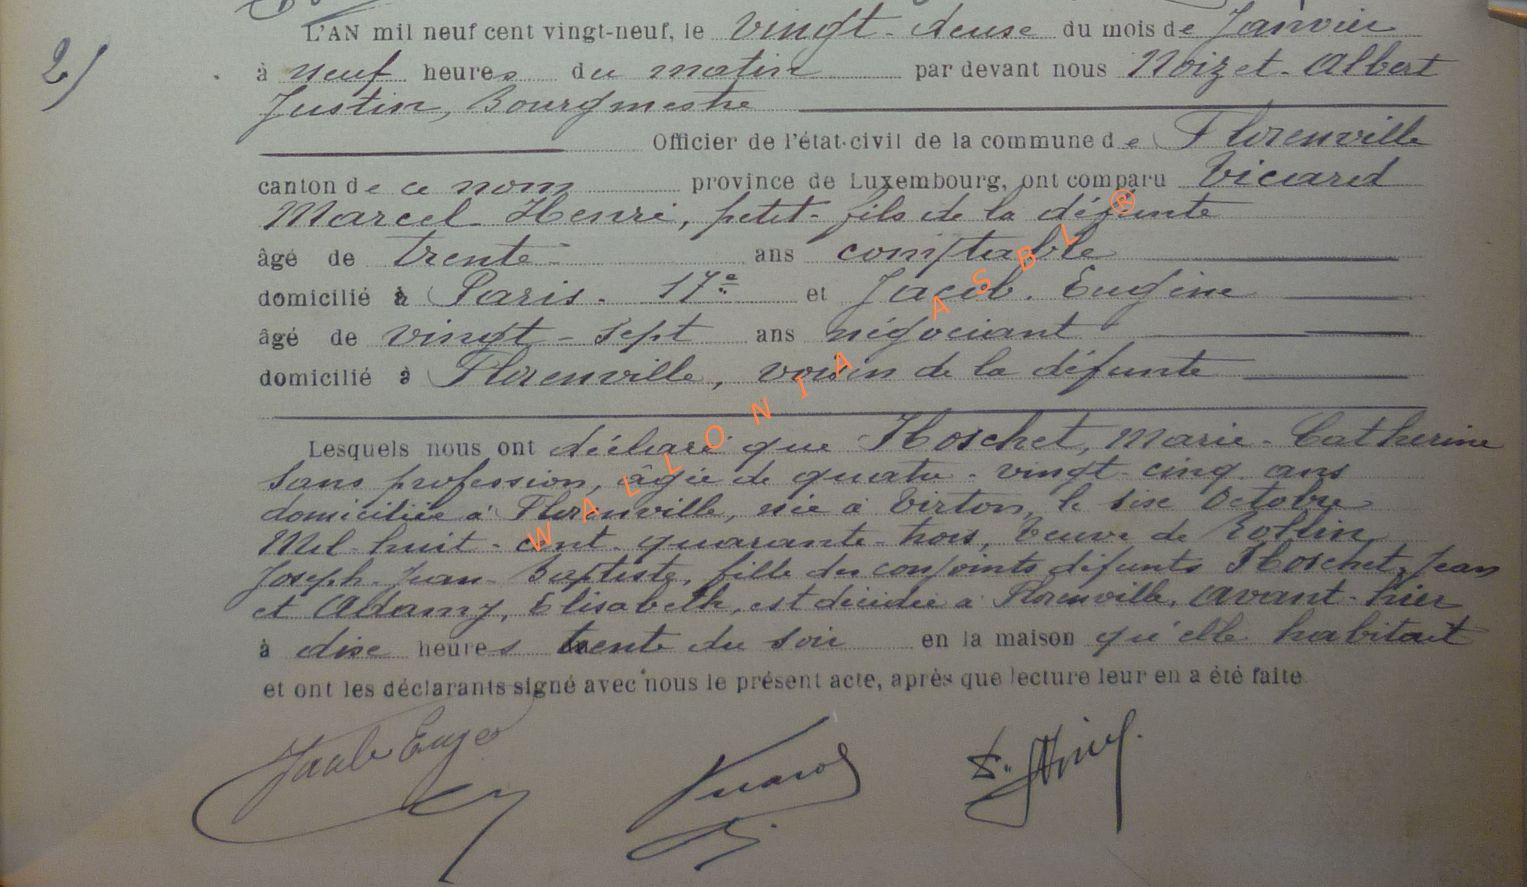 2/
L'AN mil neuf cent vingt-neuf, le vingt-deux du mois de Janvier
à neuf heures du matin par devant nous Noizet-Albert
Justin, Bourgmestre
Officier de l'état-civil de la commune de Florenville
canton de ce nom province de Luxembourg, ont comparu
Marcel Henri, petit-fils de la défunte
âgé de trente ans comptable
domicilié à Paris. 17e et Jacob. Eugène
âgé de vingt-sept ans négociant
domicilié à Florenville, voisin de la défunte
Lesquels nous ont déclaré que Hoschet, Marie-Catherine
sans profession, âgée de quatre-vingt-cinq ans
domiciliée à Florenville, née à Virton, le six Octobre
Mil-huit-cent-quarante-trois, Veuve de
Joseph-Jean-Baptiste, fille des conjoints défunts Hoschet, Jean
et Adamy, Elisabeth, est décédée à Florenville, avant-hier
à dix heures trente du soir en la maison qu'elle habitait
et ont les déclarants signé avec nous le présent acte, après que lecture leur en a été faite
WALLONIA ASBL ®